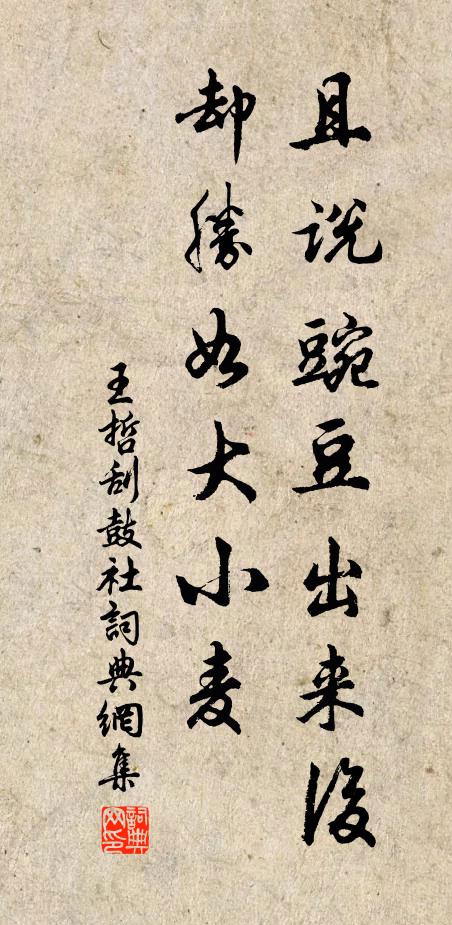 且说豌豆出来後
却勝如大小麦
王哲刮鼓社詞典網集
詞典网印